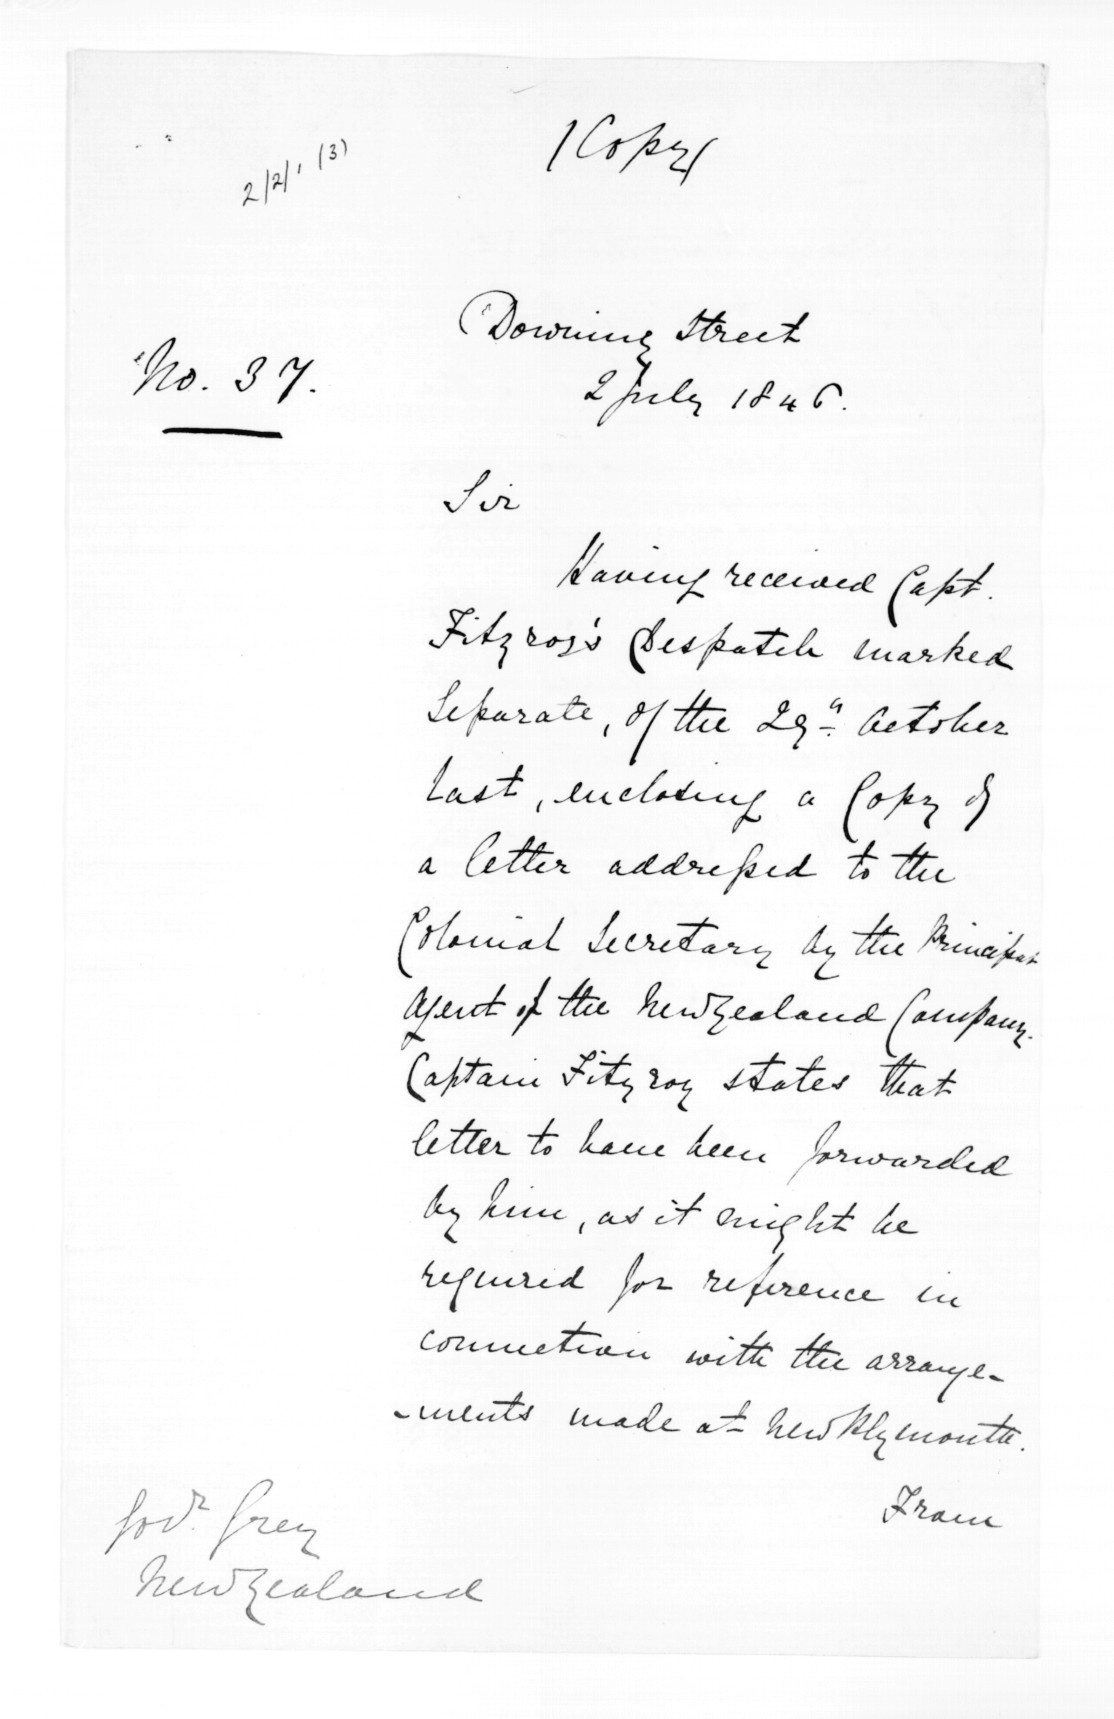 (Copy)
2/2/1 (3)
Downing Street
No. 37.
2 July 1846.
Sir
Having received Capt.
Fitzroy's Despatch marked
Separate, of the 29th October
last, enclosing a Copy of
a letter addressed to the
Colonial Secretary by the Principal
Agent of the New Zealand Company.
Captain Fitzroy states that
letter to have been forwarded
by him, as it might be
required for reference in
connection with the arrange-
-ments made at New Plymouth.
From
Govr. Grey
New Zealand